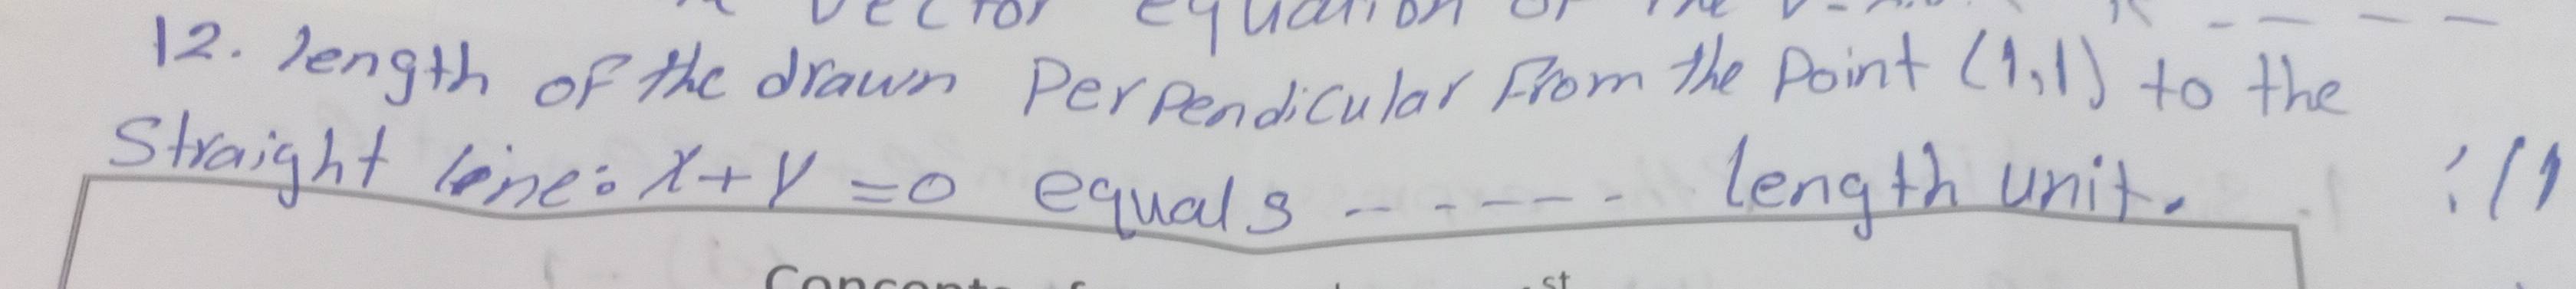 vector equation of the
12. length of the drawn Perpendicular From the Point (1,1) to the
Straight line: X+Y=0 equals ------ length unit.
st